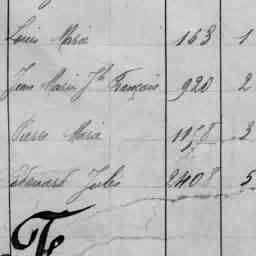 Louis Marie 163 1
Jean Marie Jh François 920 2
Pierre Marie 1158 3
Edouard Jules 2408 5